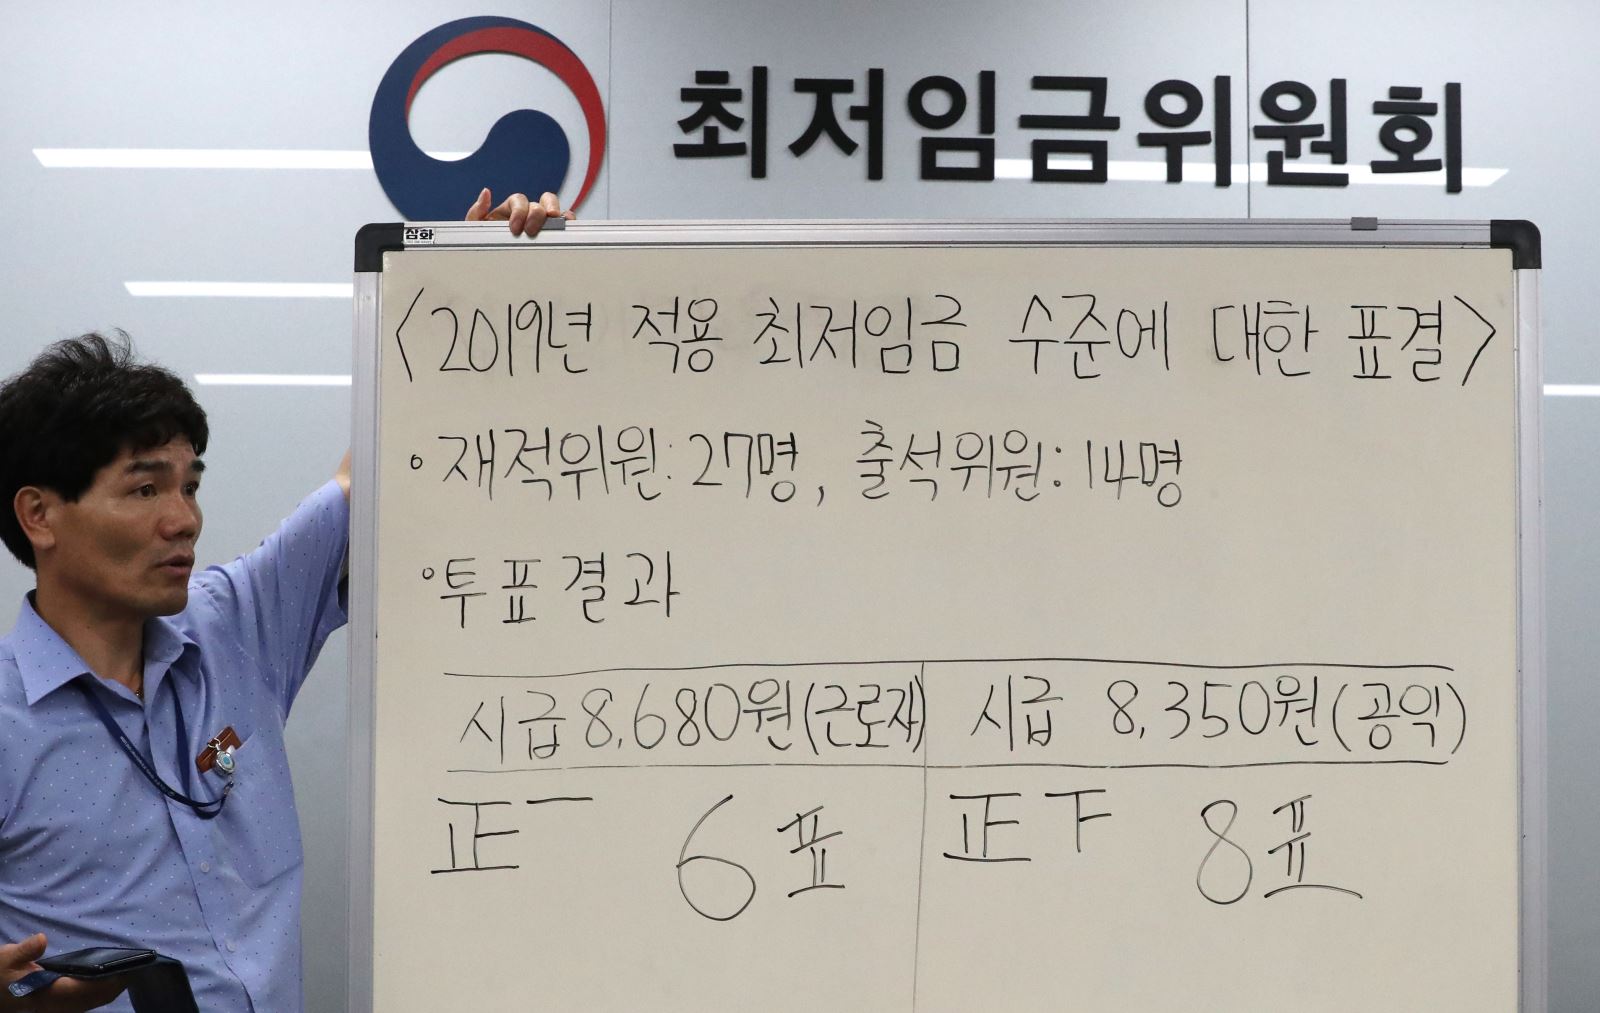 최저임금위원회
삼화
<2019년 적용 최저임금 수준에 대한 표결>
• 재적위원: 27명, 출석위원: 14명
• 투표결과
시급 8,680원(근로자) 시급 8,350원(공익)
正一 6표 正下 8표